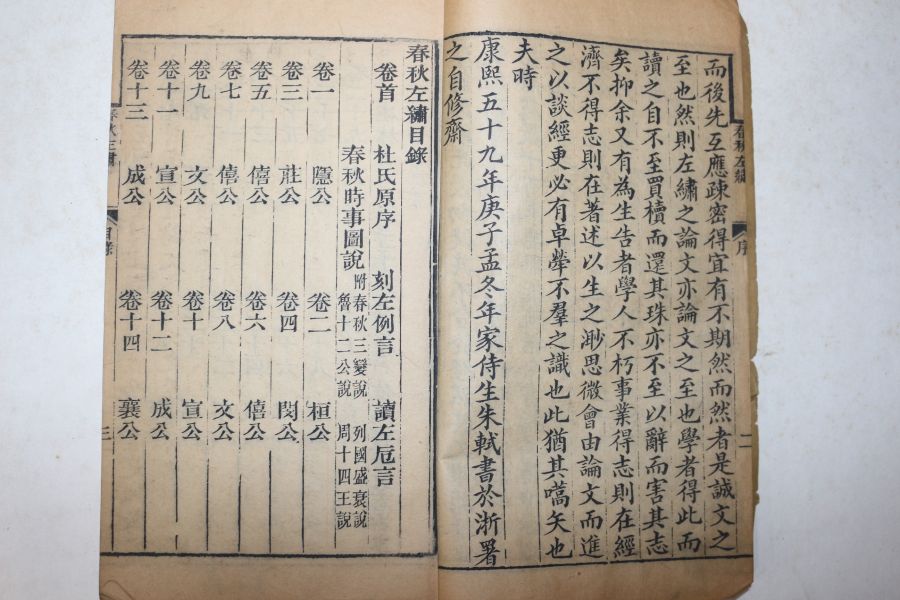 而後先互應疎密得宜有不期然而然者是誠文之
至也然則左繡之論文亦論文之至也學者得此而
讀之自不至買櫝而還其珠亦不至以辭而害其志
矣抑余又有為生告者學人不朽事業得志則在經
濟不得志則在著述以生之渺思微會由論文而進
之以談經更必有卓犖不羣之識也此猶其嚆矢也
夫時
康熙五十九年庚子孟冬年家侍生朱軾書於浙署
之自修齋
春秋左繡
序
二
春秋左繡目錄
卷首 杜氏原序 刻左例言 讀左巵言
春秋時事圖說 附春秋三變說 列國盛衰說
魯十二公說 周十四王說
卷一 隱公 卷二 桓公
卷三 莊公 卷四 閔公
卷五 僖公 卷六 僖公
卷七 僖公 卷八 文公
卷九 文公 卷十 宣公
卷十一 宣公 卷十二 成公
卷十三 成公 卷十四 襄公
春秋左繡
目錄
三